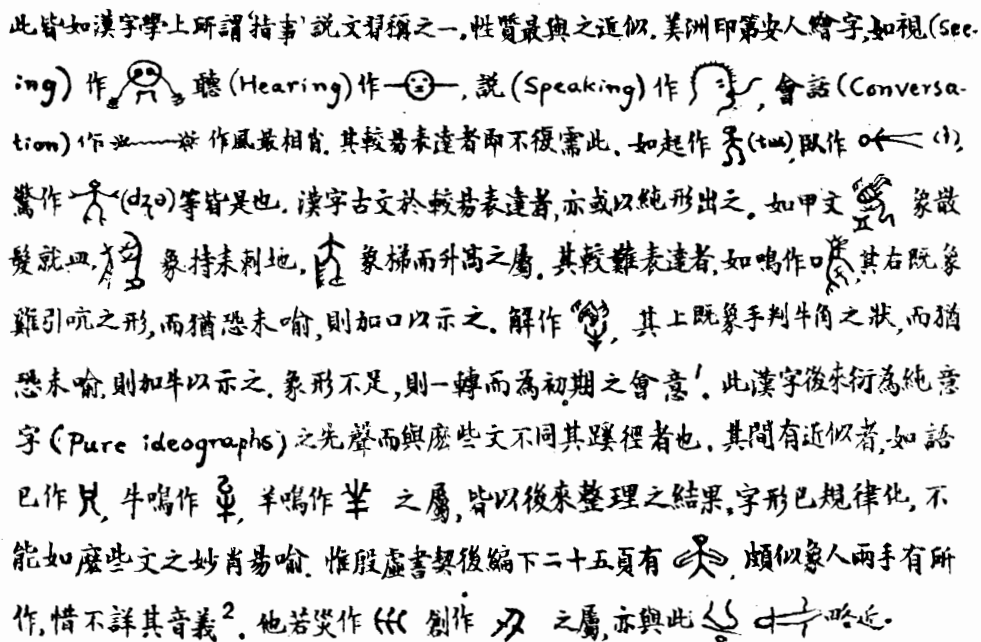 此皆如漢字學上所謂‘指事’說文習稱之一，性質最與之近似．美洲印第安人繪字，如視(See-
ing)作，聽(Hearing)作，說(Speaking)作，會話(Conversa-
tion)作 作風最相肖．其較易表達者即不復需此．如起作(tɯ)，臥作(i)，
驚作(dʐə)等皆是也．漢字古文於較易表達者，亦或以純形出之．如甲文 象散
髮就皿， 象持耒刺地， 象梯而升高之屬．其較難表達者，如鳴作，其右既象
雞引吭之形，而猶恐未喻，則加口以示之．解作，其上既象手判牛角之狀，而猶
恐未喻，則加牛以示之．象形不足，則一轉而為初期之會意1．此漢字後來衍為純意
字(Pure ideographs)之先聲而與麽些文不同其蹊徑者也．其間有近似者，如語
已作，牛鳴作，羊鳴作 之屬，皆以後來整理之結果，字形已規律化，不
能如麽些文之妙肖易喻．惟殷虛書契後編下二十五頁有，頗似象人兩手有所
作，惜不詳其音義2．他若災作 創作 之屬，亦與此 略近．